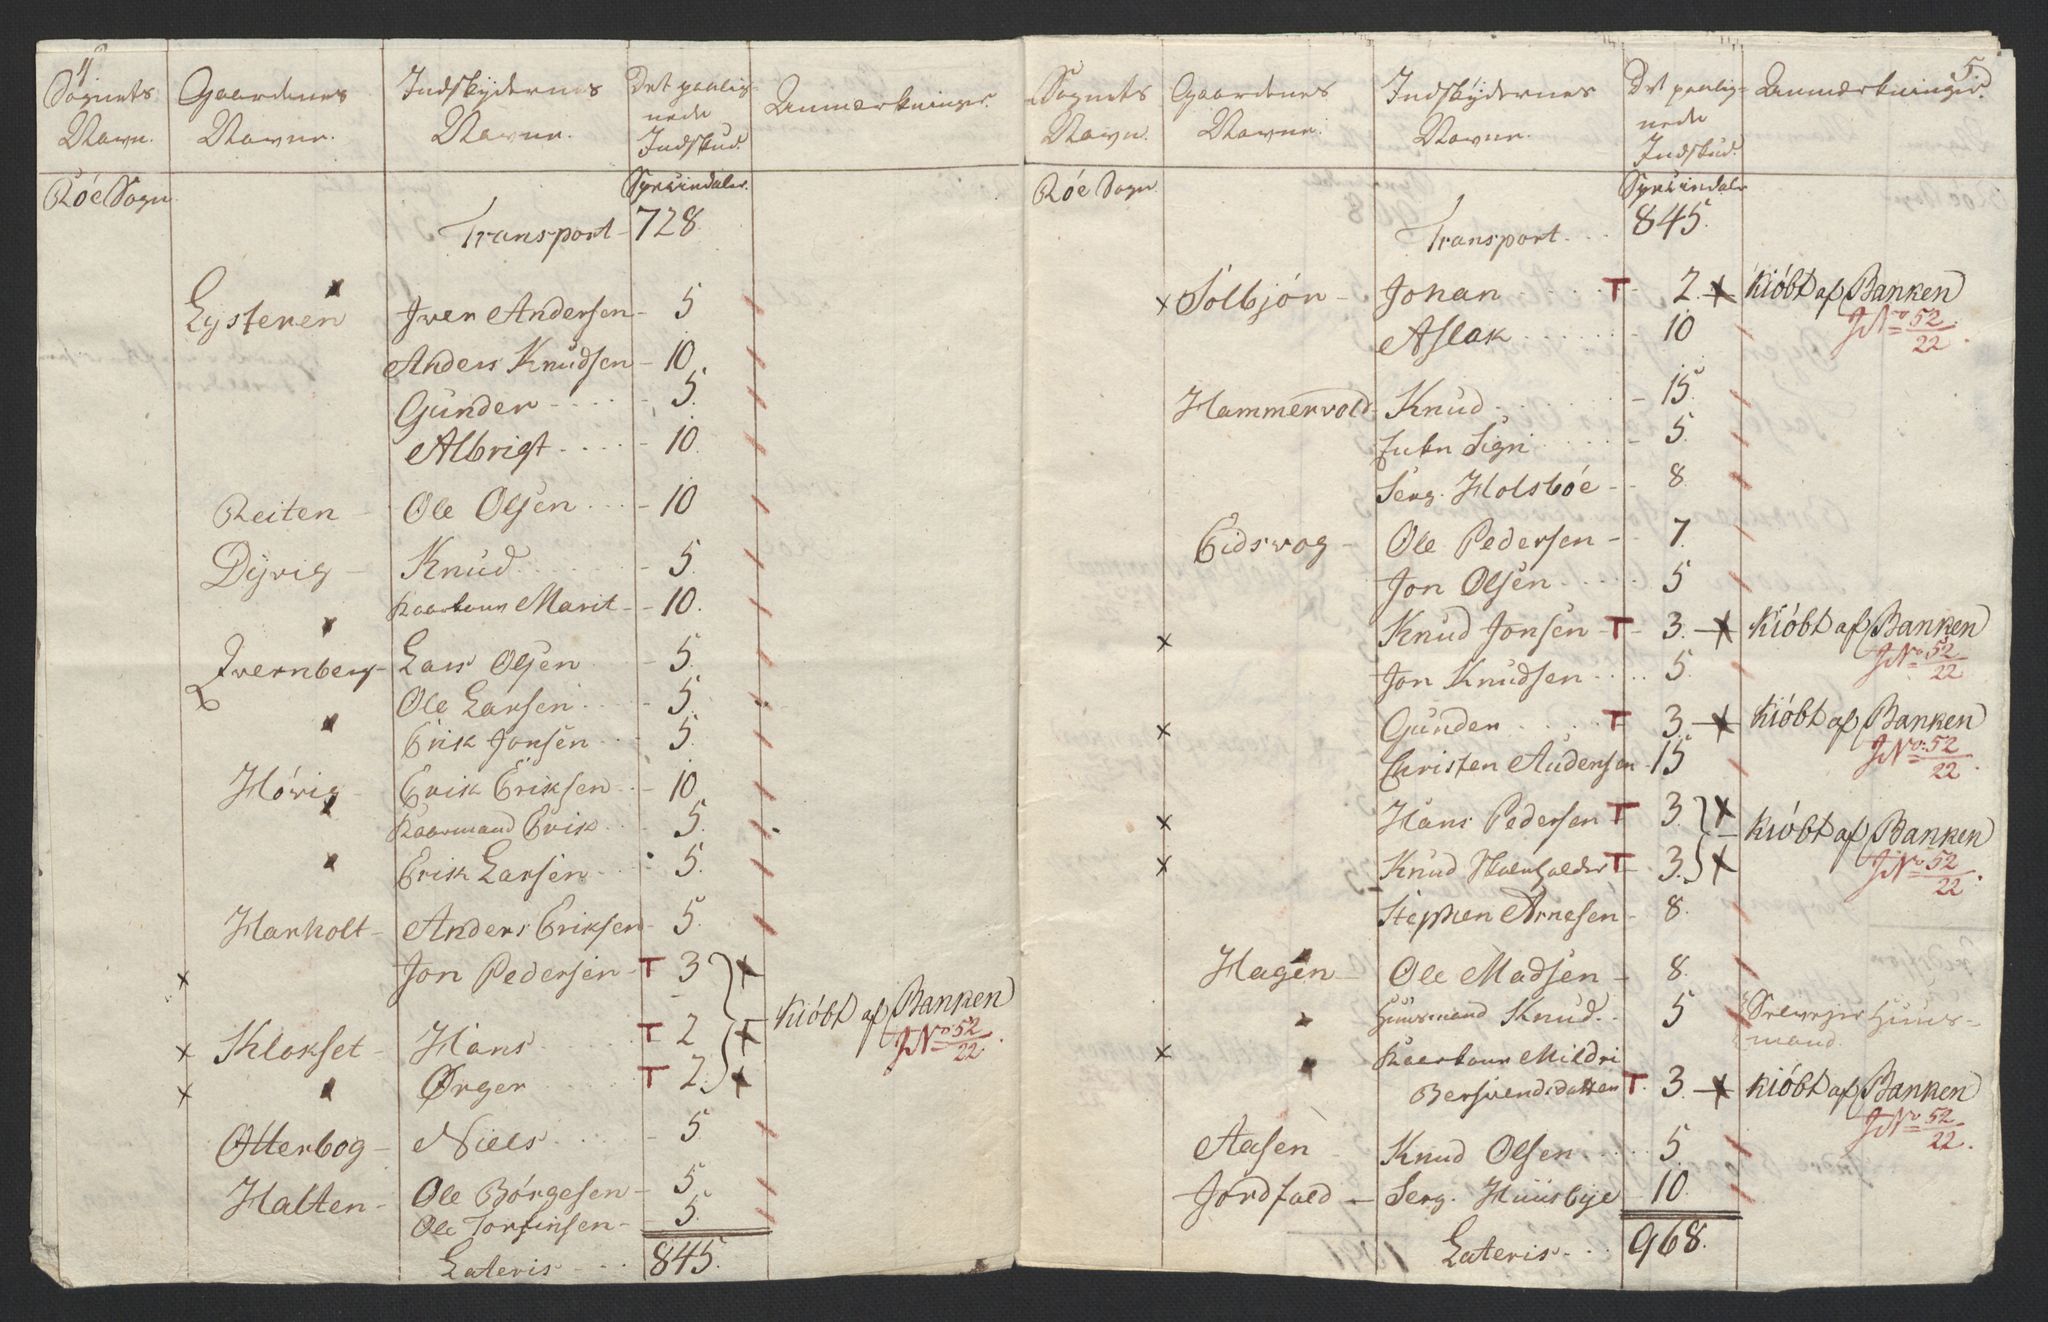 4
Sognets
Navn.
Gaardenes
Navne.
Indskydernes
Navne.
Det paalig-
nede
Indskud.
Anmærkninger.
Speciedaler.
Róe Sogn
Transport - 728.
Eysteren Iver Andersen - 5
Anders Knudsen - 10.
Gunder - 5.
Albrigt - 10.
Reiten - Ole Olsen - 10
Dyrvig - Knud - 5.
Kaarkone Marit - 10.
Ivernberg - Lars Olsen - 5.
Ole Larsen - 5.
Erik Jonsen - 5.
Hóvig - Erik Eriksen - 10
Kaarmand Erik - 5.
Erik Larsen - 5.
Harholt - Anders Eriksen - 5.
x Jon Pedersen - T 3
x Klokset - Hans T 2 Kióbt af Banken
JNo 52/22.
x Ørger T 2.
Otterbog - Niels - 5
Halten - Ole Börgesen - 5
Ole Torfinsen - 5.
Lateris - 845.
5.
Sognets
Navn.
Gaardenes
Navne.
Indskydernes
Navne.
Det paalig-
nede
Indskud.
Anmærkninger.
Speciedaler
Róe Sogn
Transport. 845.
x Solbjór - Johan T 2. x Kióbt af Banken
JNo 52/22.
Aslak 10
Hammervold - Knud - 15.
Enken Signi - 5.
Serg. Holsbóe - 8.
Eidsvog - Ole Pedersen - 7.
Jon Olsen 5
x Knud Jonsen - T 3. x Kióbt af Banken
JNo. 52/22
Jon Knudsen 5.
x Gunder T 3. x Kióbt af Banken
JNo. 52/22.
Christen Andersen - 15
x Hans Pedersen T 3. x
Kióbt af Banken
JNo 52/22.
x Knud T 3. x
Stephen Arnesen - 8.
Hagen - Ole Madsen - 8.
Huusmand Knud 5 Selvejer Huus-
mand.
x Kaarkone Mildri
Bersvendsdatter T. 3. x Kióbt af Banken
JNo 52/22.
Aasen - Knud Olsen 5.
Jordfald - Serg. Huusbye 10.
Lateris 968.